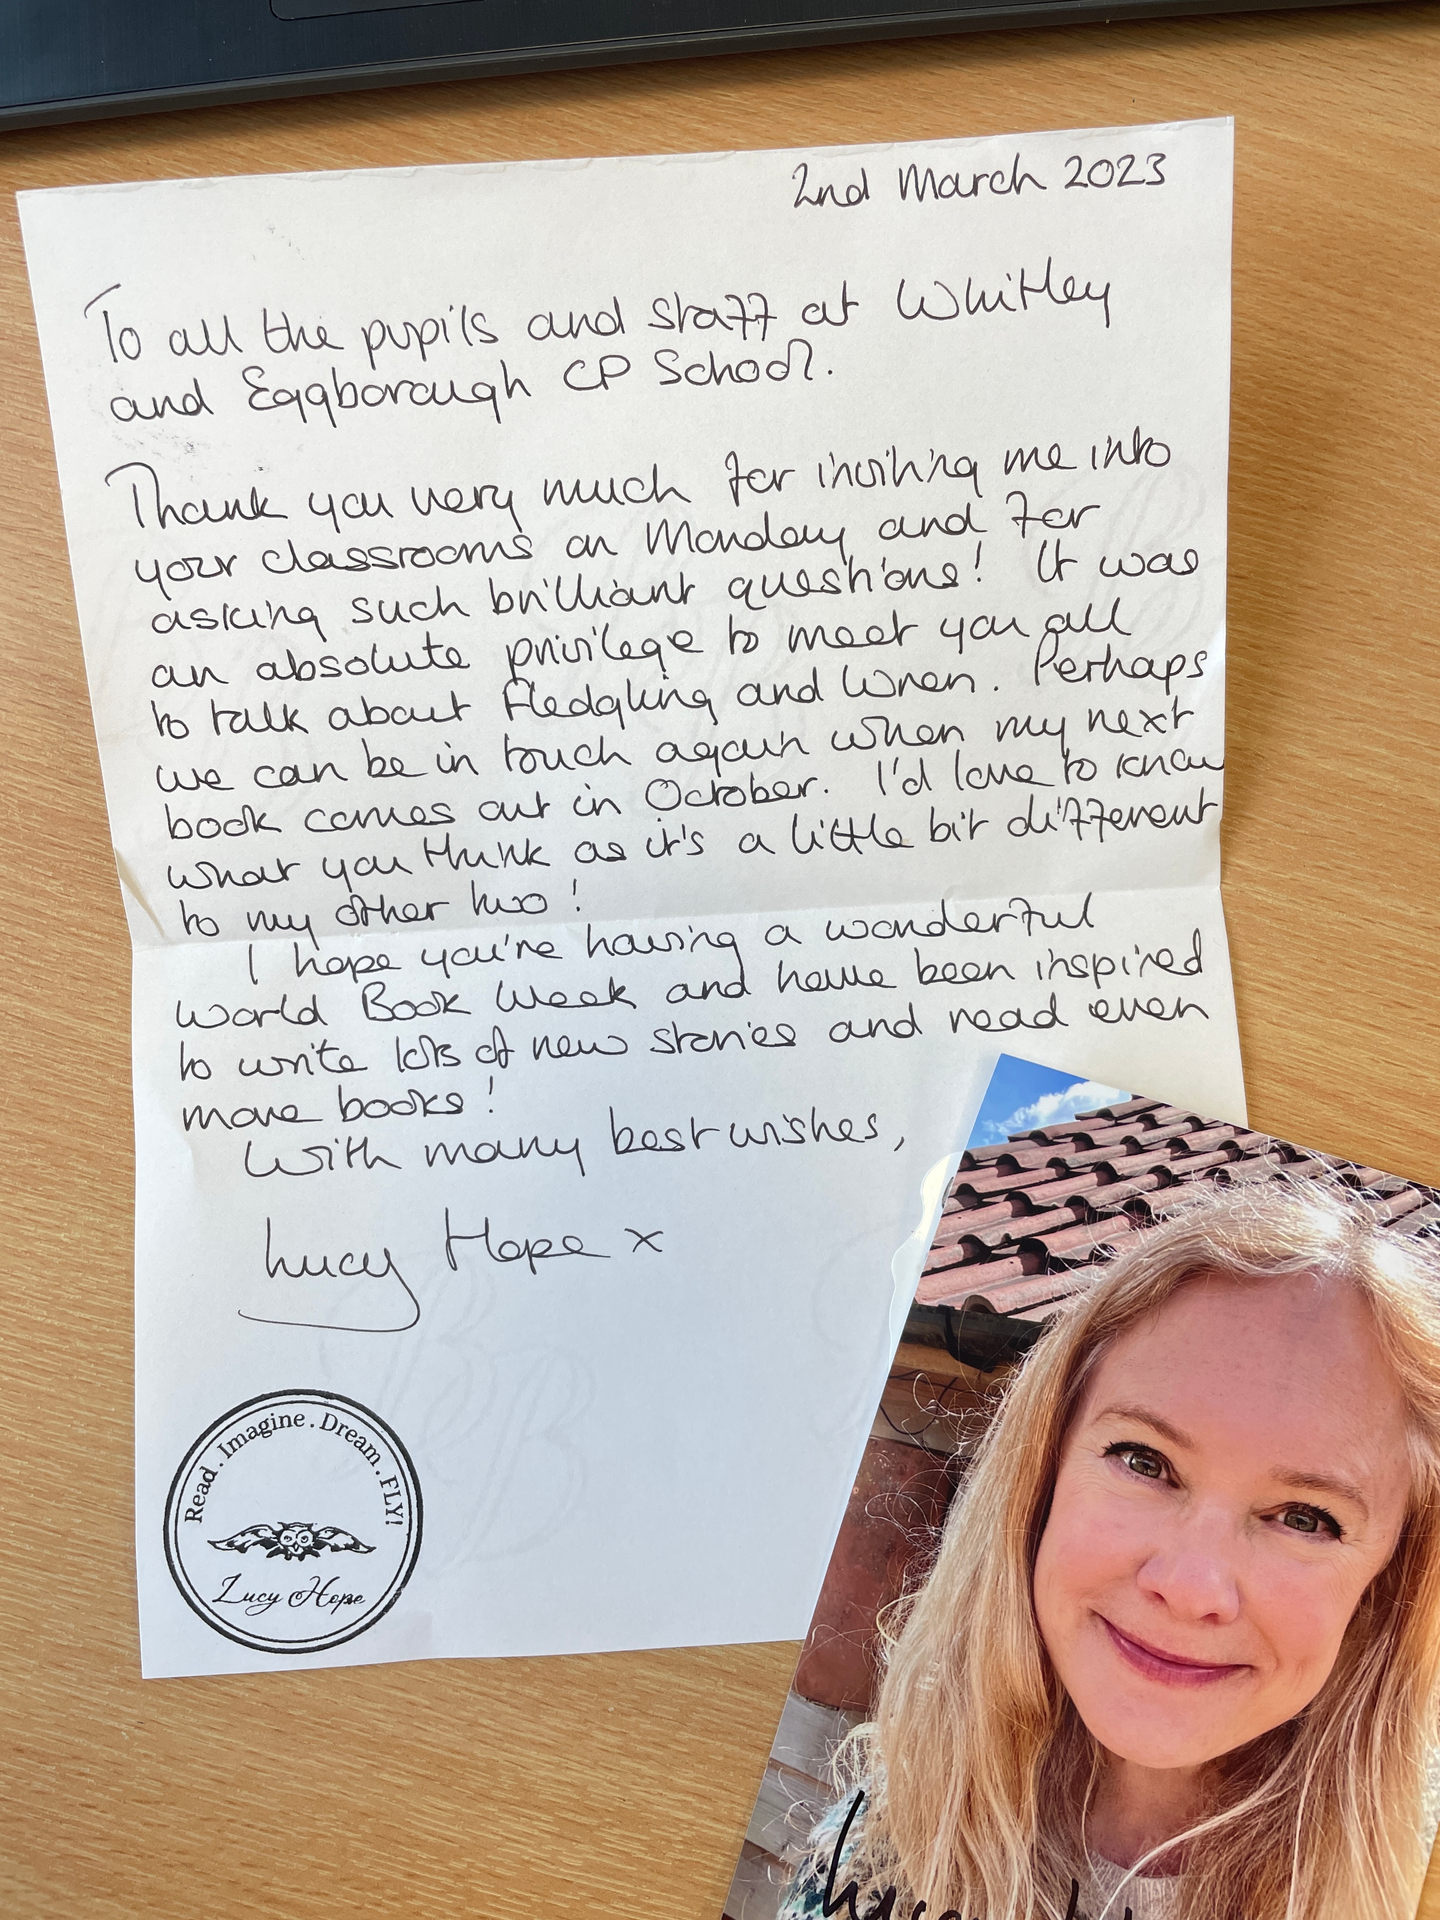 2nd March 2023
To all the pupils and staff at Whitley
and Eggborough CP School.
Thank you very much for inviting me into
your classrooms on Monday and for
asking such brilliant questions! It was
an absolute privilege to meet you all
to talk about Fledgling and Wren. Perhaps
we can be in touch again when my next
book comes out in October. I'd love to know
what you think as it's a little bit different
to my other two!
I hope you're having a wonderful
World Book Week and have been inspired
to write lots of new stories and read even
more books!
With many best wishes,
Lucy Hope x
Read. Imagine. Dream. FLY!
Lucy Hope
Lucy